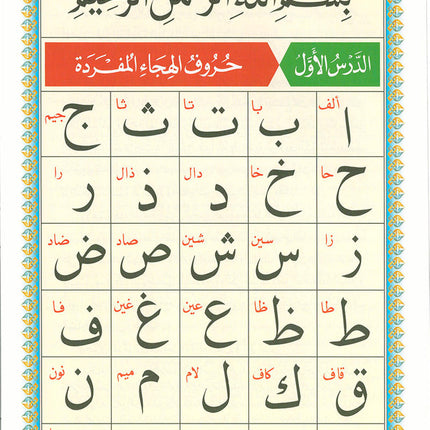 بِسْمِ اللهِ الرَّحْمٰنِ الرَّحِيمِ
الدَّرْسُ الأَوَّلُ حُرُوفُ الهِجَاءِ المُفْرَدَة
ألف با تا ثا جيم
ا ب ت ث ج
حا خا دال ذال را
ح خ د ذ ر
زا سين شين صاد ضاد
ز س ش ص ض
طا ظا عين غين فا
ط ظ ع غ ف
قاف كاف لام ميم نون
ق ك ل م ن